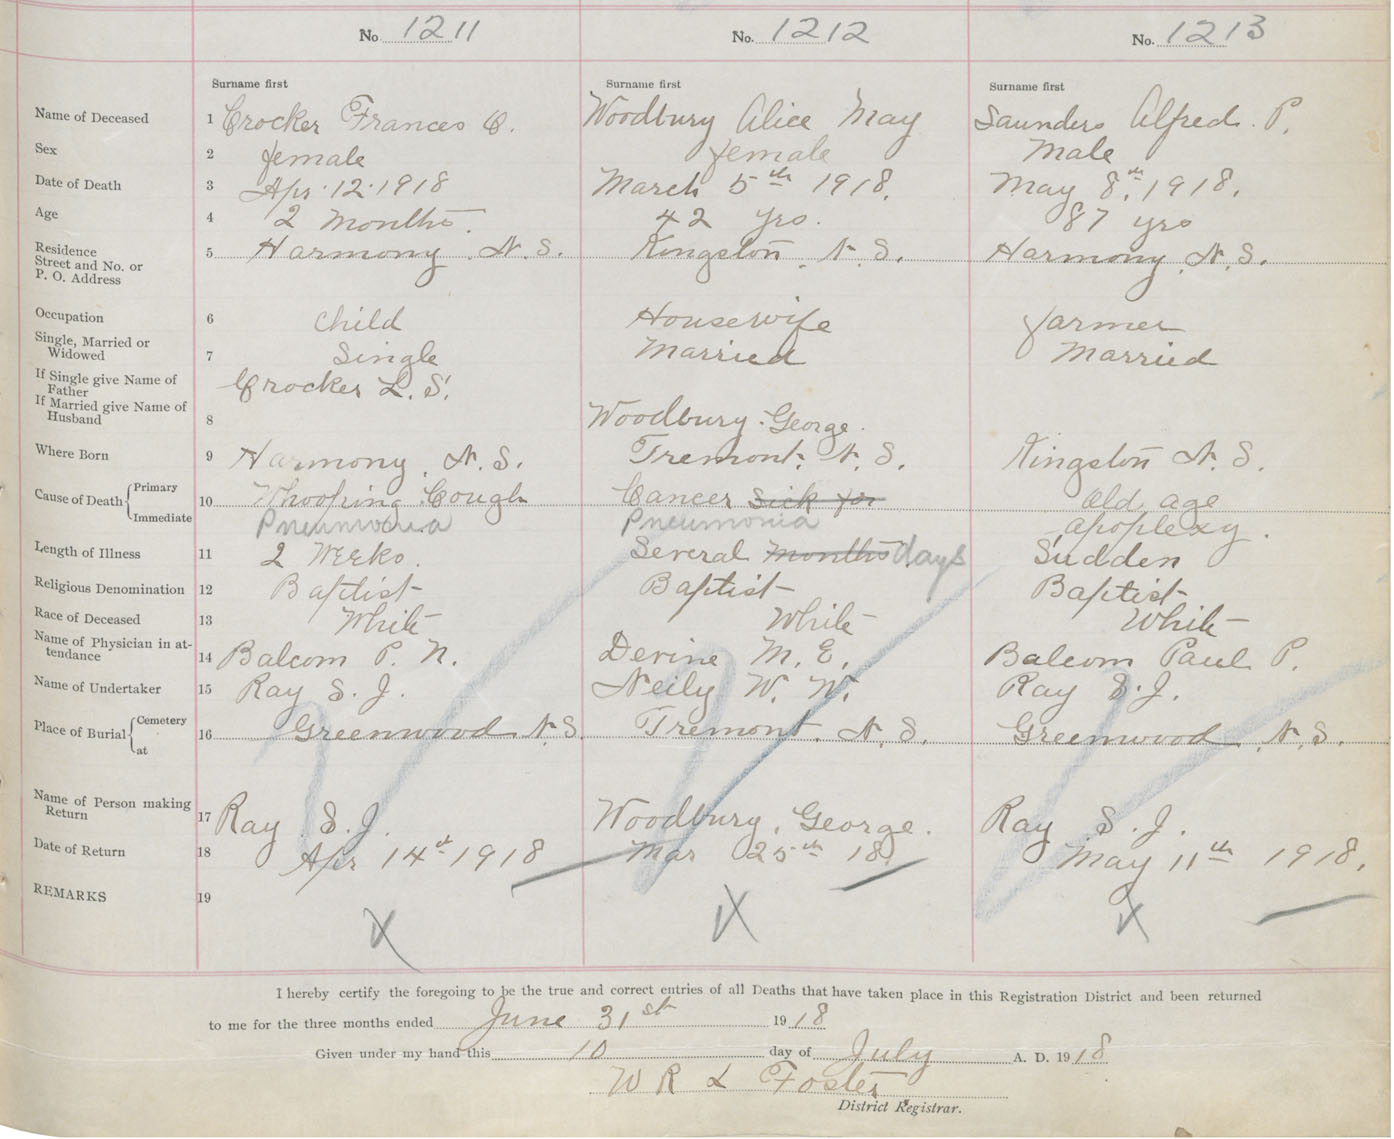 No. 1211 No. 1212 No. 1213
Surname first Surname first Surname first
Name of Deceased 1 Crocker Frances C. Woodbury Alice May Saunders Alfred. P.
Sex 2 female female Male
Date of Death 3 Apr. 12. 1918 March 5th 1918. May 8th, 1918.
Age 4 2 Months. 42 yrs. 87 yrs
Residence
Street and No. or
P. O. Address 5 Harmony. N. S. Kingston, N. S. Harmony, N. S.
Occupation 6 Child Housewife farmer
Single, Married or
Widowed 7 Single Married Married
If Single give Name of
Father Crocker L. S.
If Married give Name of
Husband 8 Woodbury. George.
Where Born 9 Harmony, N. S. Tremont, N. S. Kingston N. S.
Cause of Death { Primary 10 Whooping Cough Cancer Sick for Old age
Immediate Pneumonia Pneumonia apoplexy.
Length of Illness 11 2 Weeks. Several Months days Sudden
Religious Denomination 12 Baptist Baptist Baptist
Race of Deceased 13 White White White
Name of Physician in at-
tendance 14 Balcom P. N. Devine M. E. Balcom Paul P.
Name of Undertaker 15 Ray S. J. Neily W. W. Ray S. J.
Place of Burial { Cemetery
at 16 Greenwood N. S. Tremont, N. S. Greenwood, N. S.
Name of Person making
Return 17 Ray S. J. Woodbury, George. Ray S. J.
Date of Return 18 Apr 14th 1918 Mar 25th 18. May 11th 1918.
REMARKS 19
I hereby certify the foregoing to be the true and correct entries of all Deaths that have taken place in this Registration District and been returned
to me for the three months ended June 31st 1918
Given under my hand this 10 day of July A. D. 1918
W R L Foster
District Registrar.